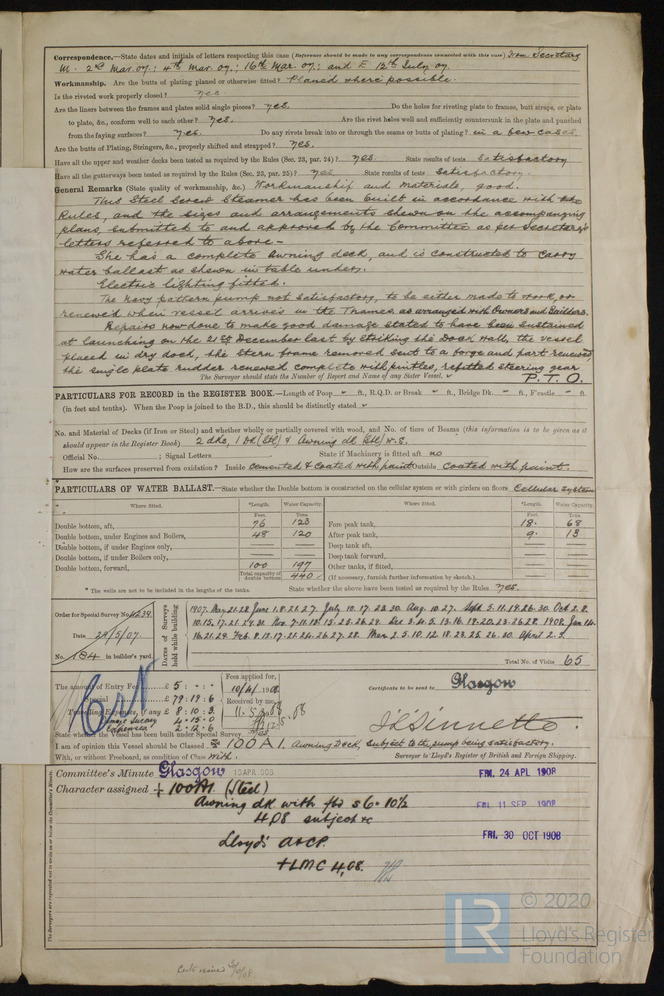 Correspondence.—State dates and initials of letters respecting this case (Reference should be made to any correspondence connected with this case) From Secretary
M. 2nd Mar. 07; 4th Mar. 07; 16th Mar. 07; and E 12th July 07.
Workmanship. Are the butts of plating planed or otherwise fitted? Planed where possible.
Is the riveted work properly closed? yes.
Are the liners between the frames and plates solid single pieces? yes. Do the holes for riveting plate to frames, butt straps, or plate
to plate, &c., conform well to each other? yes. Are the rivet holes well and sufficiently countersunk in the plate and punched
from the faying surfaces? yes. Do any rivets break into or through the seams or butts of plating? in a few cases.
Are the butts of Plating, Stringers, &c., properly shifted and strapped? yes.
Have all the upper and weather decks been tested as required by the Rules (Sec. 23, par. 24)? yes State results of tests Satisfactory
Have all the gutterways been tested as required by the Rules (Sec. 23, par. 25)? yes State results of tests Satisfactory.
General Remarks (State quality of workmanship, &c.) Workmanship and materials, good.
This Steel Screw Steamer has been built in accordance with the
Rules, and the sizes and arrangements shewn on the accompanying
plans, submitted to and approved by the Committee as per Secretary's
letters referred to above —
She has a complete Awning deck, and is constructed to carry
water ballast as shewn in table under.
Electric lighting fitted.
The Navy pattern pump not satisfactory, to be either made to work, or
renewed when vessel arrives in the Thames as arranged with Owners and Builders.
Repairs now done to make good damage stated to have been sustained
at launching on the 21st December last by striking the Dock Wall, the vessel
placed in dry dock, the Stern frame removed sent to a forge and part renewed,
the single plate rudder renewed complete with pintles, refitted steering gear
The Surveyor should state the Number of Report and Name of any Sister Vessel. P.T.O.
PARTICULARS FOR RECORD in the REGISTER BOOK.—Length of Poop ft., R.Q.D. or Break ft., Bridge Dk. ft., F'castle ft.
(in feet and tenths). When the Poop is joined to the B.D., this should be distinctly stated
No. and Material of Decks (if Iron or Steel) and whether wholly or partially covered with wood, and No. of tiers of Beams (this information is to be given as it
should appear in the Register Book) 2 dks, 1 Dk (Stl) & Awning dk (Stl)
Official No. ; Signal Letters State if Machinery is fitted aft no
How are the surfaces preserved from oxidation? Inside Cemented & Coated with paint Outside Coated with paint.
PARTICULARS OF WATER BALLAST.—State whether the Double bottom is constructed on the cellular system or with girders on floors Cellular System
Where fitted. *Length. Water Capacity. Where fitted. *Length. Water Capacity.
Feet. Tons. Feet. Tons.
Double bottom, aft, 76 123 Fore peak tank, 18. 68
Double bottom, under Engines and Boilers, 48 120 After peak tank, 9. 13
Double bottom, if under Engines only, Deep tank aft,
Double bottom, if under Boilers only, Deep tank forward,
Double bottom, forward, 100 197 Other tanks, if fitted,
Total capacity of double bottom 440 (If necessary, furnish further information by sketch.)
* The wells are not to be included in the lengths of the tanks. State whether the above have been tested as required by the Rules yes.
Order for Special Survey No. 4234
Date 24/5/07.
No. 184 in builder's yard.
Dates of Surveys held while building
1907. May 21. 28. June 1. 8. 21. 27. July 10. 17. 22. 30. Aug. 10. 27. Sept. 5. 11. 19. 26. 30. Oct. 2. 8.
10. 15. 17. 21. 24. 31. Nov. 7. 11. 13. 15. 25. 26. 29. Dec. 3. 4. 5. 13. 16. 19. 20. 23. 26. 28. 1908. Jan 14.
16. 21. 29. Feb. 8. 12. 17. 21. 24. 26. 27. 28. Mar. 2. 5. 10. 12. 18. 23. 25. 26. 30. April 2. 3.
Total No. of Visits 65
The amount of Entry Fee £ 5 : - : -
Special £ 79 : 19 : 6
Travelling Expenses, if any £ 8 : 10 : 3
Damage Survey 4 . 15 . 0
Expenses 2 . 12 . 6
Fees applied for, 10/4/1908
Received by me,
Certificate to be sent to Glasgow
State whether the Vessel has been built under Special Survey
I am of opinion this Vessel should be Classed 100 A1 Awning Deck, Subject to the pump being satisfactory.
With, or without Freeboard, as condition of Class With.
Surveyor to Lloyd's Register of British and Foreign Shipping.
The Surveyors are requested not to write on or below the Committee's Minute.
Committee's Minute Glasgow 13 APR. 1908
Character assigned + 100A1 (Steel)
Awning dk with fbd
4,08 subject &c
Lloyd's A&CP.
+ LMC 4,08.
FRI. 24 APL 1908
FRI. 11 SEP. 1908
FRI. 30 OCT 1908
LR
© 2020
Lloyd's Register
Foundation